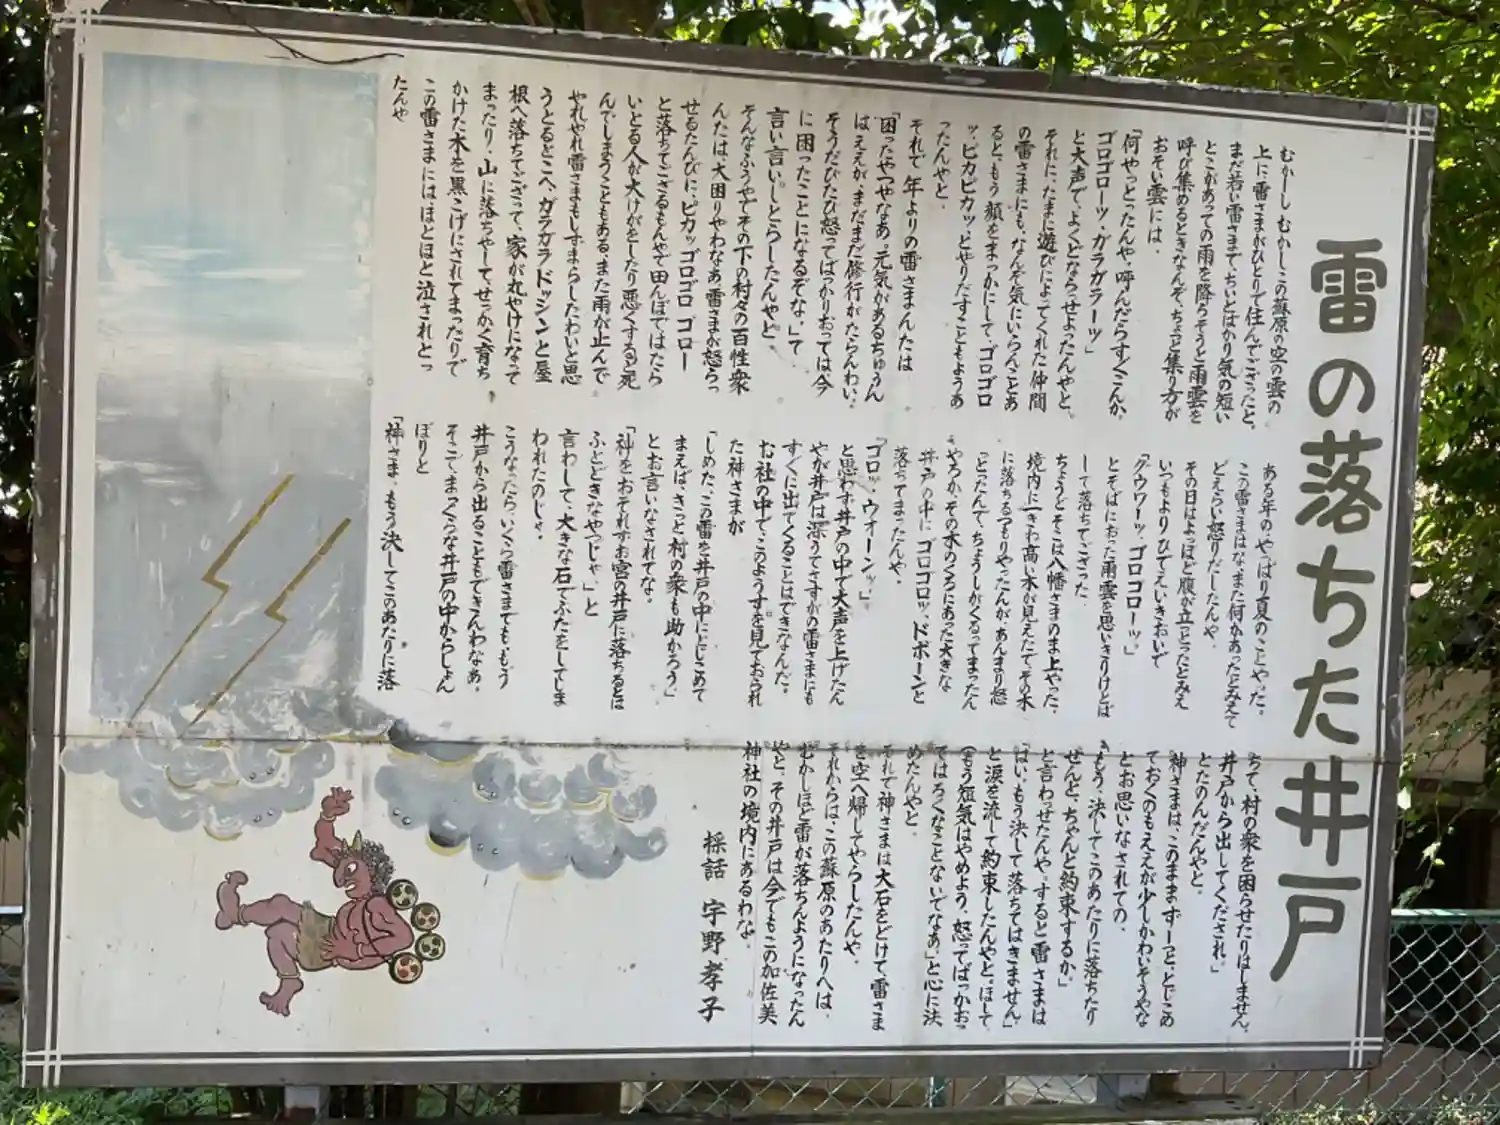 雷の落ちた井戸
むかーしむかしこの蘇原の空の雲の
上に雷さまがひとりで住んでござったと、
まだ若い雷さまで、ちいとばかり気の短い
とこがあっての雨を降らそうと雨雲を
呼び集めるときなんぞ、ちょこっと集り方が
おそい雲には、
「何やっとったんや、呼んだらすぐこんか、
ゴロゴローッ、ガラガラーッ」
と大声で、よくどならっせよったんやと。
それに、たまに遊びによってくれた仲間
の雷さまにも、なんぞ気にいらんことあ
ると、もう顔をまっかにして、ゴロゴロ
ッ、ピカピカッ、とやりだすこともようあ
ったんやと。
それで年よりの雷さまんたは
「困ったやつやなあ。元気があるちゅうん
はええが、まだまだ修行がたらんわい。
そうだびたび怒ってばっかりおっては今
に困ったことになるぞな、」て
言い言いしとらしたんやと。
そんなふうやでその下の村々の百性衆
んたは、大困りやわなあ雷さまが怒らっ
せるたんびに、ピカッゴロゴロ ゴロー
と落ちてござるもんやで田んぼではたら
いとる人が大けがをしたり悪くすると死
んでしまうこともある、また雨が止んで
やれやれ雷さまもしずまらしたわいと思
うとるとこへ、ガラガラドッシンと屋
根へ落ちてござって、家が丸やけになって
まったり、山に落ちやして、せっかく育ち
かけた木を黒こげにされてまったりで
この雷さまにはほとほと泣されとっ
たんや
ある年の、やっぱり夏のことやった。
この雷さまはな、また何かあったとみえて
どえらい怒りだしたんや、
その日はよっぽど腹が立ったとみえ
いつもよりひでえいきおいで
「グウワーッ、ゴロゴローッ」
とそばにおった雨雲を思いきりけとば
して落ちてござった。
ちょうどそこは八幡さまのま上やった。
境内に一きわ高い木が見えたでその木
に落ちるつもりやったんが、あんまり怒
っとったんで、ちょうしがくるってまったん
やろか、その木のくろにあった大きな
井戸の中に ゴロゴロッ、ドボーンと
落ちてまったんや。
「ゴロッ、ウオーンッ」
と思わず井戸の中で大声を上げたん
やが井戸は深うてさすがの雷さまにも
すぐに出てくることはできなんだ。
お社の中で、このようすを見ておられ
た神さまが
「しめた、この雷を井戸の中にとじこめて
まえば、きっと村の衆も助かろう」
とお言いなされてな。
「神をおそれずお宮の井戸に落ちるとは
ふとどきなやつじゃ」と
言わして、大きな石でふたをしてしま
われたのじゃ。
こうなったら、いくら雷さまでも、もう
井戸から出ることもできんわなあ。
そこで、まっくらな井戸の中からしょん
ぼりと
「神さま、もう決してこのあたりに落
ちて、村の衆を困らせたりはしません。
井戸から出してくだされ。」
とたのんだんやと。
神さまは、このままずーっと、とじこめ
ておくのもええが少しかわいそうやな
とお思いなされての、
「もう、決してこのあたりに落ちたり
せんと、ちゃんと約束するか。」
と言わせたんや。すると雷さまは
「はい、もう決して落ちてはきません」
と涙を流して約束したんやと。ほして
（もう短気はやめよう、怒ってばっかおっ
てはろくなことないでなあ）と心に決
めたんやと。
それで神さまは大石をどけて、雷さま
を空へ帰してやらしたんや。
それからは、この蘇原のあたりへは、
むかしほど雷が落ちんようになったん
やと、その井戸は今でもこの加佐美
神社の境内にあるわな。
採話 宇野孝子